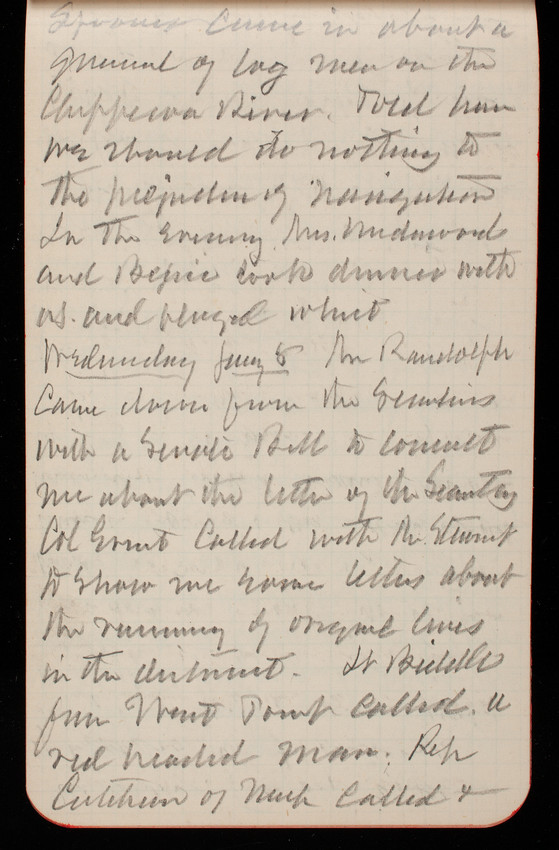 Spooner came in about a
 of log men on the
Chippewa River. Told him
we should do nothing to
the prejudice of navigation
In the evening Mrs. Underwood
and Bessie took dinner with
us. and played whist
Wednesday Jany 8 Mr Randolph
came down from the Secretarys
with a Senate Bill to consult
me about the letter of the Secretary
Col Ernst called with Mr. Stewart
to show me some letters about
the running of original lines
in the district. Lt Biddle
from Troop called. a
red headed man. Rep
Cutcheon of Mich called &